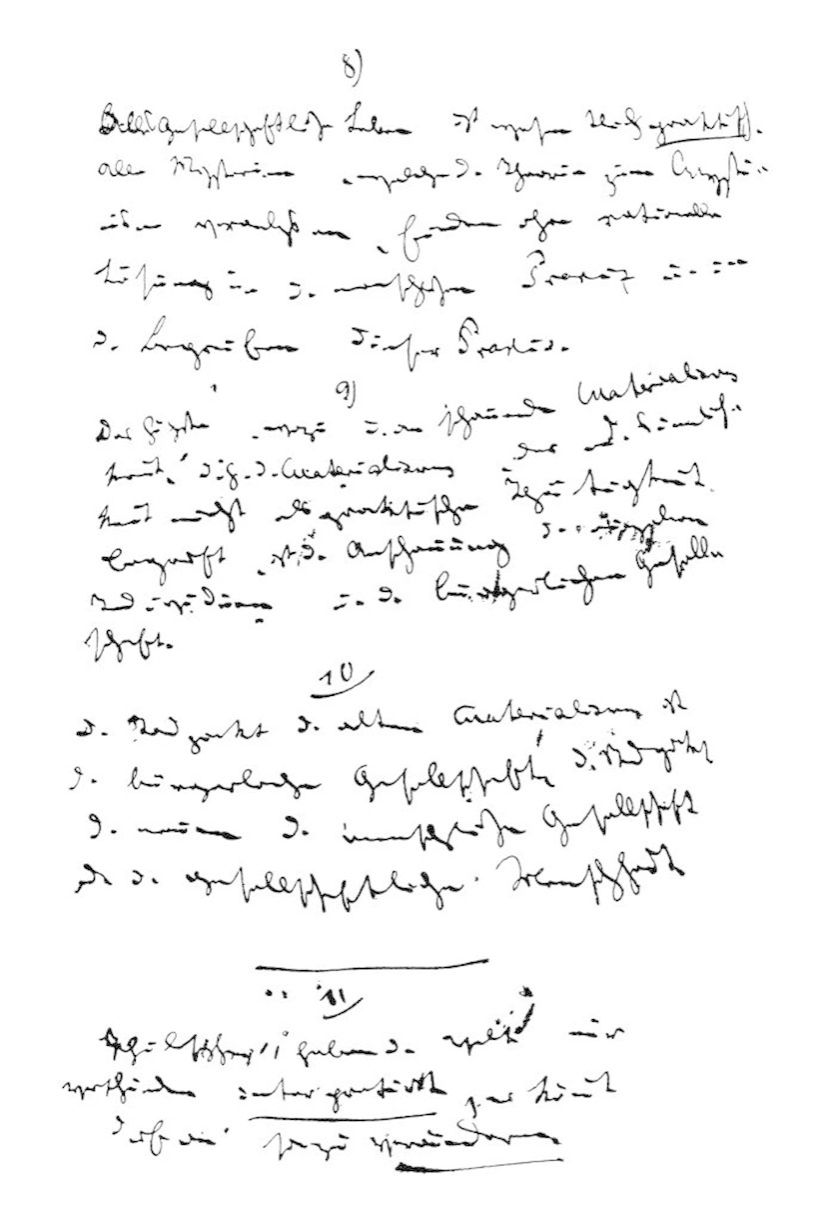 8)
gesellschaftliche Leben ist wesentlich praktisch.
Alle Mysterien, welche d. Theorie zum Mysti-
veranlassen, finden ihre rationelle
Lösung in d. menschlichen Praxis u. in
d. Begreifen dieser Praxis.
9)
Das Höchste, wozu der anschauende Materialismus
kommt, d. h. d. Materialismus der d. Sinnlich-
keit nicht als praktische Thätigkeit
begreift, ist d. Anschauung d. einzelnen
Individuen u. d. bürgerlichen Gesell-
schaft.
10
D. Standpunkt d. alten Materialismus ist
d. bürgerliche Gesellschaft, d. Standpunkt
d. neuen d. menschliche Gesellschaft
od. d. gesellschaftliche Menschheit
11
D. Philosophen haben d. Welt nur
verschieden interpretirt, es kömmt
drauf an sie zu verändern.